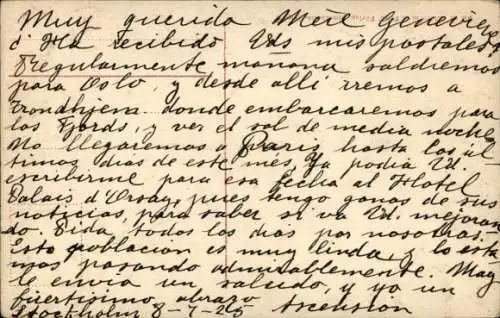 Muy querida Melle Genevieve
¿Ha recibido Uds mis postales?
Regularmente mañana saldremos
para Oslo, y desde alli iremos a
Trondhjem donde embarcaremos para
los Fjords, y ver el sol de media noche
No llegaremos a Paris hasta los ul
timos dias de este mes, ya podia Ud.
escribirme para esa fecha al Hotel
Palais d'Orsay, pues tengo ganas de sus
noticias, para saber si va Ud. mejoran
do. Pida todos los dias por nosotras.
Esta poblacion es muy linda, y lo esta
mos pasando admirablemente. May
le envia un saludo, y yo un
fuertisimo abrazo
Stockholm 8-7-25 Ascension